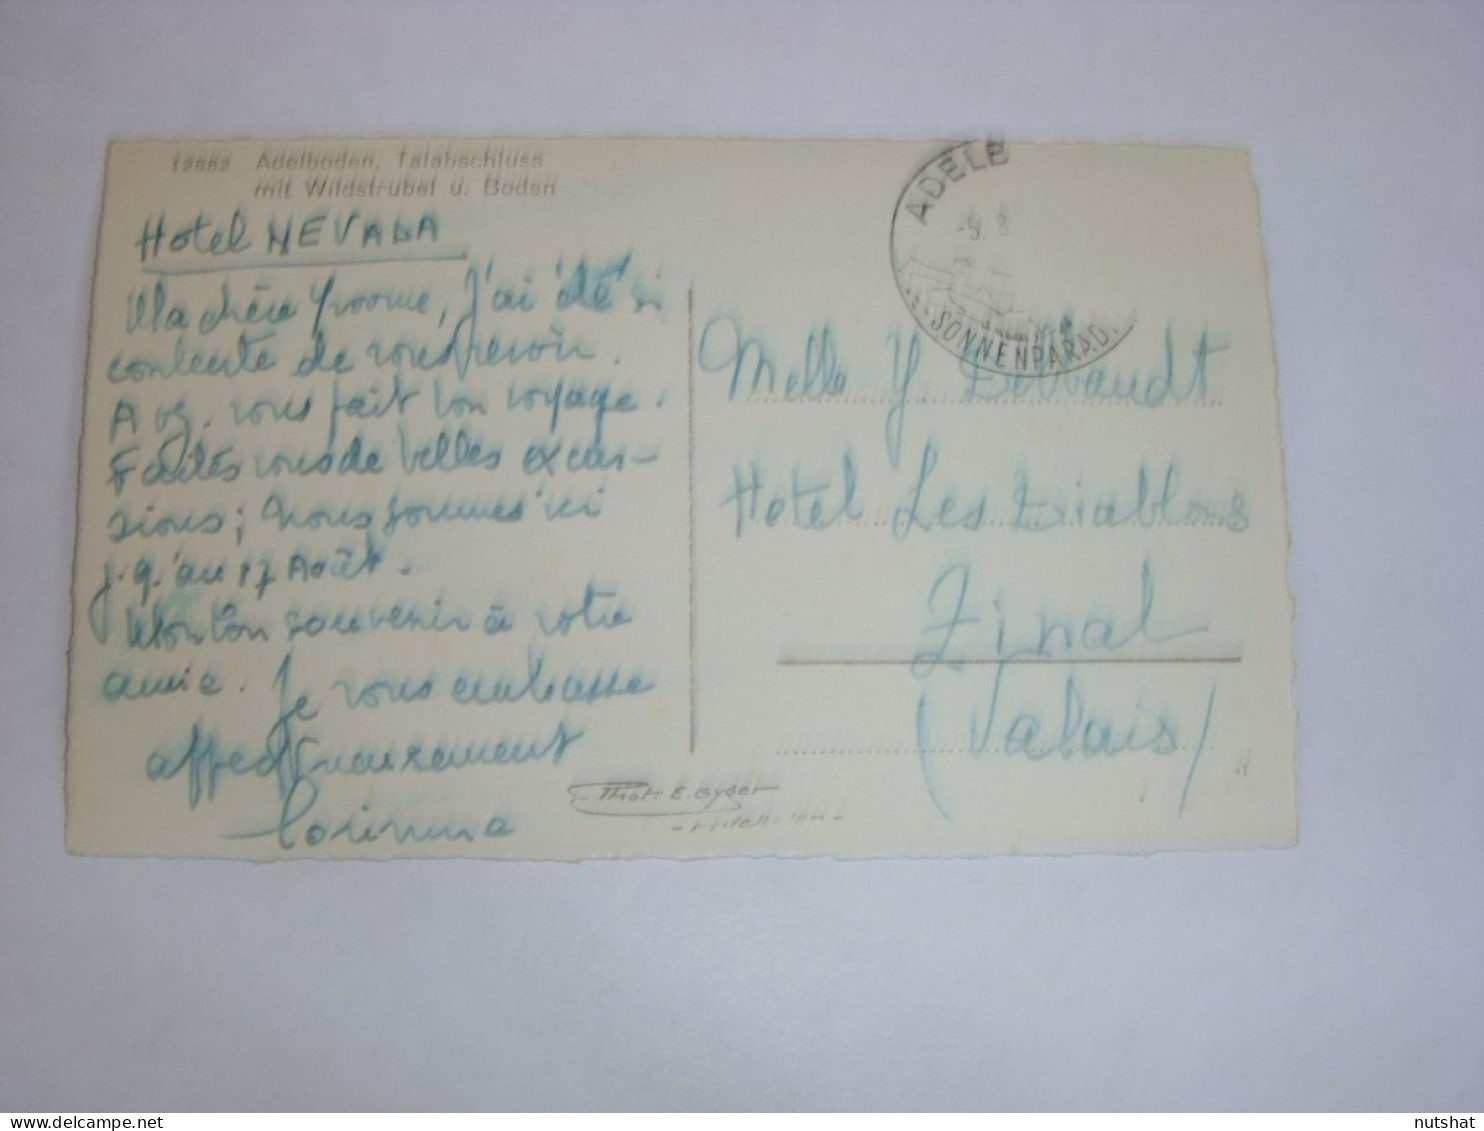 12882 Adelboden, Talabschluss
mit Wildstrubel u. Boden
Hotel NEVADA
Ma chère Yvonne, J'ai été si
contente de vous revoir.
Avez-vous fait bon voyage.
Faites vous de belles excur-
sions; Nous sommes ici
j.q.'au 17 Août.
Mon bon souvenir à votre
amie. Je vous embrasse
affectueusement
Corinna
ADELB
-9. 8
SONNENPARAD.
Melle Y.
Hotel Les Diablons
Zinal
(Valais)
Phot. E. Gyger
nutshat